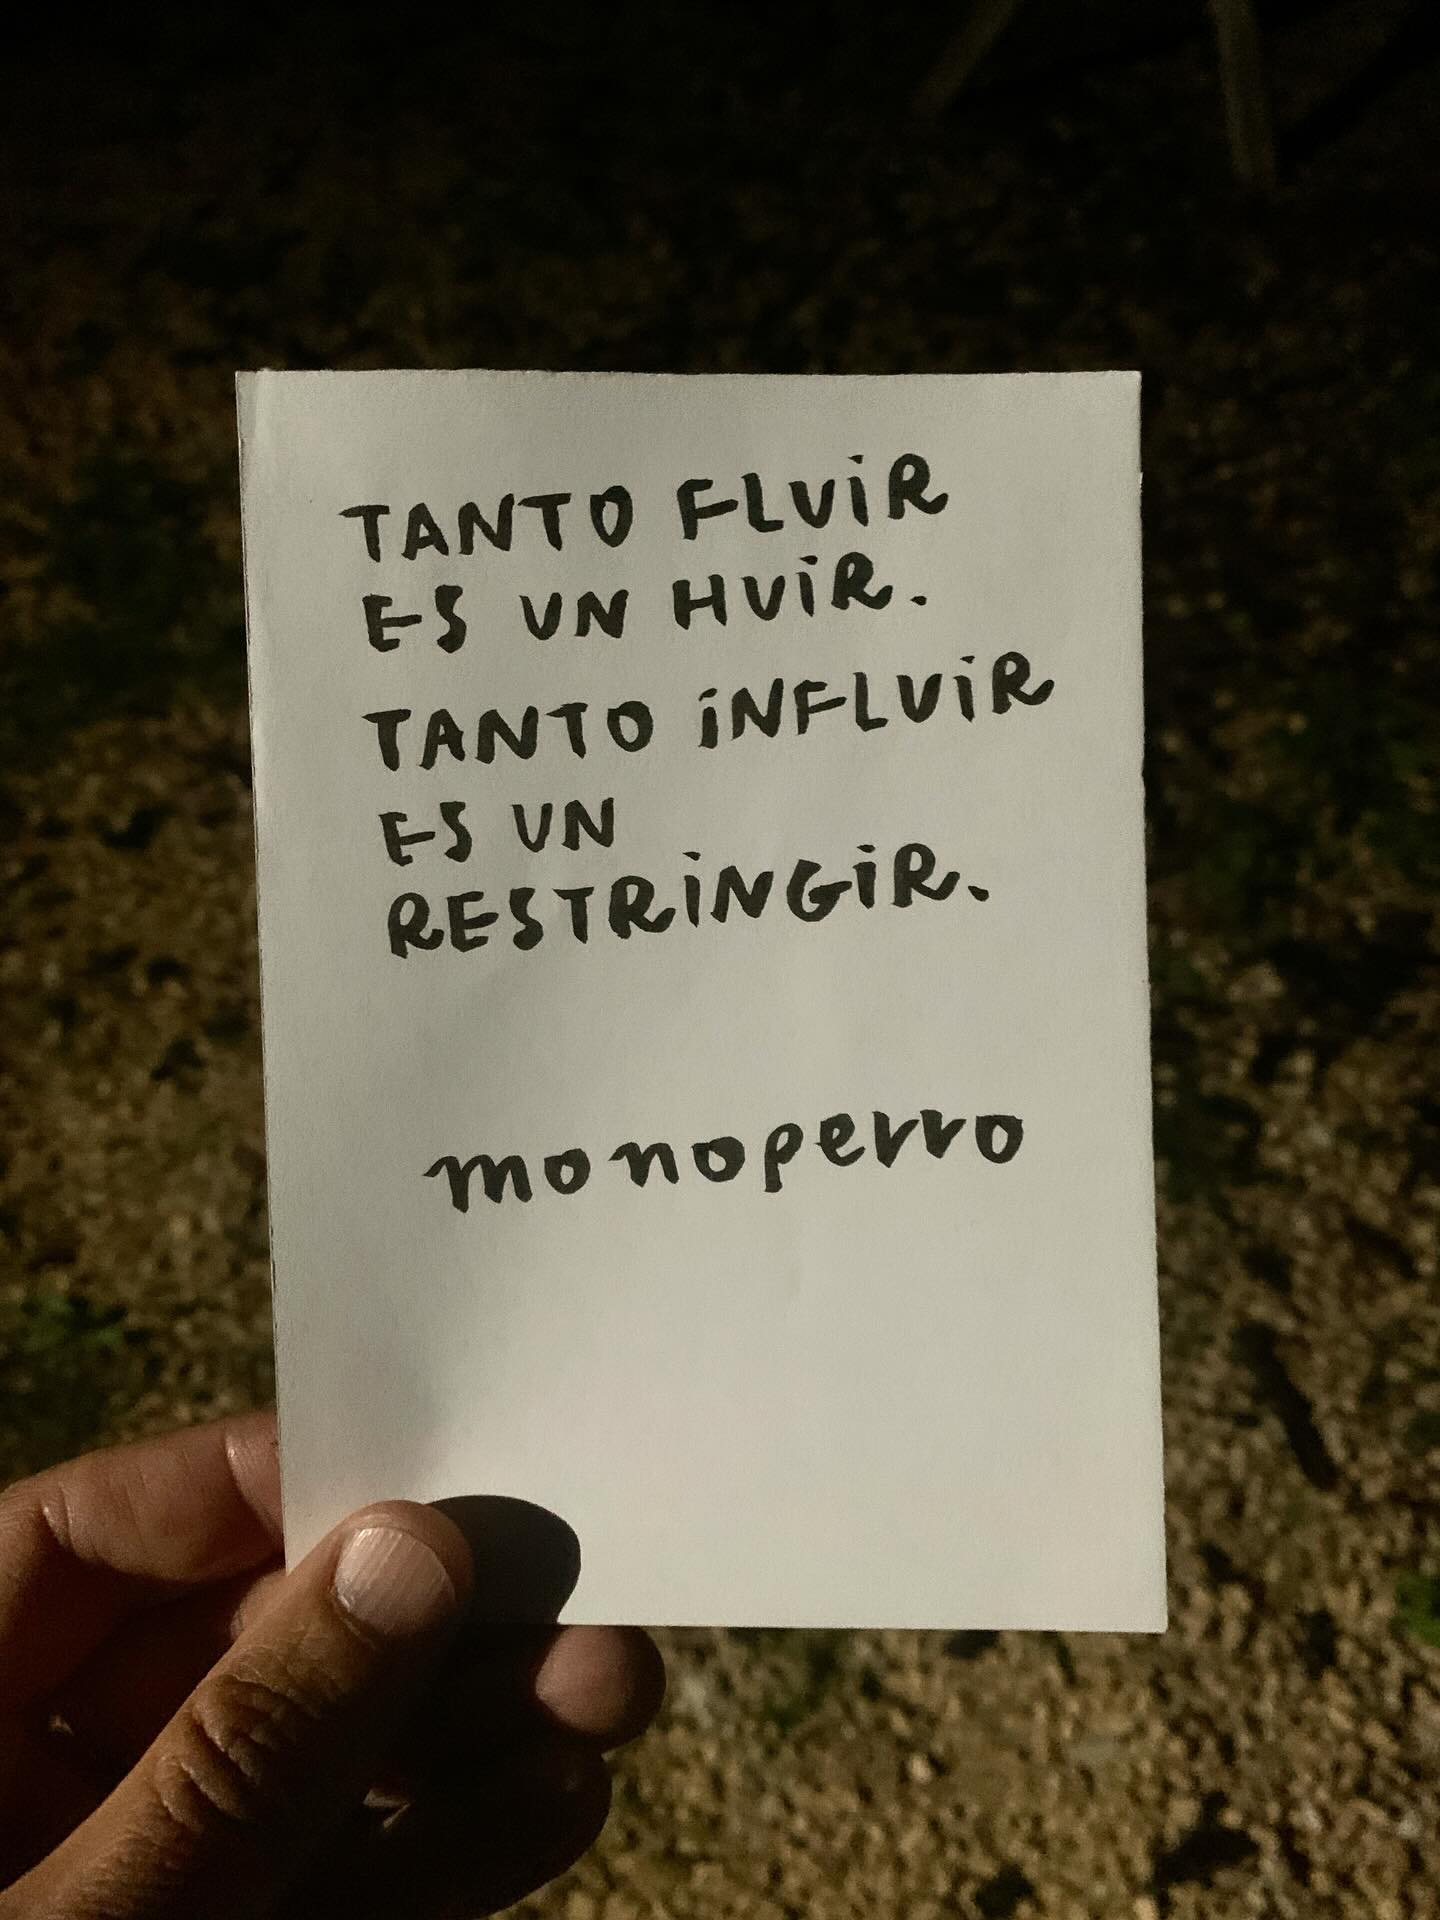 TANTO FLUiR
ES UN HUiR.
TANTO iNFLUiR
ES UN
RESTRiNGiR.
monoperro